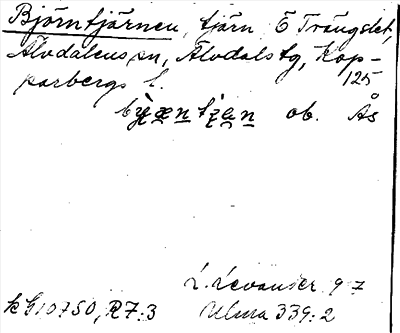 Björntjärnen, tjärn Ö Trängslet,
Älvdalens sn, Älvdalstg, Kop-
parbergs l. 125
ob. Ås
L. Levander 9 7
kG10750, R7:3 Ulma 339:2